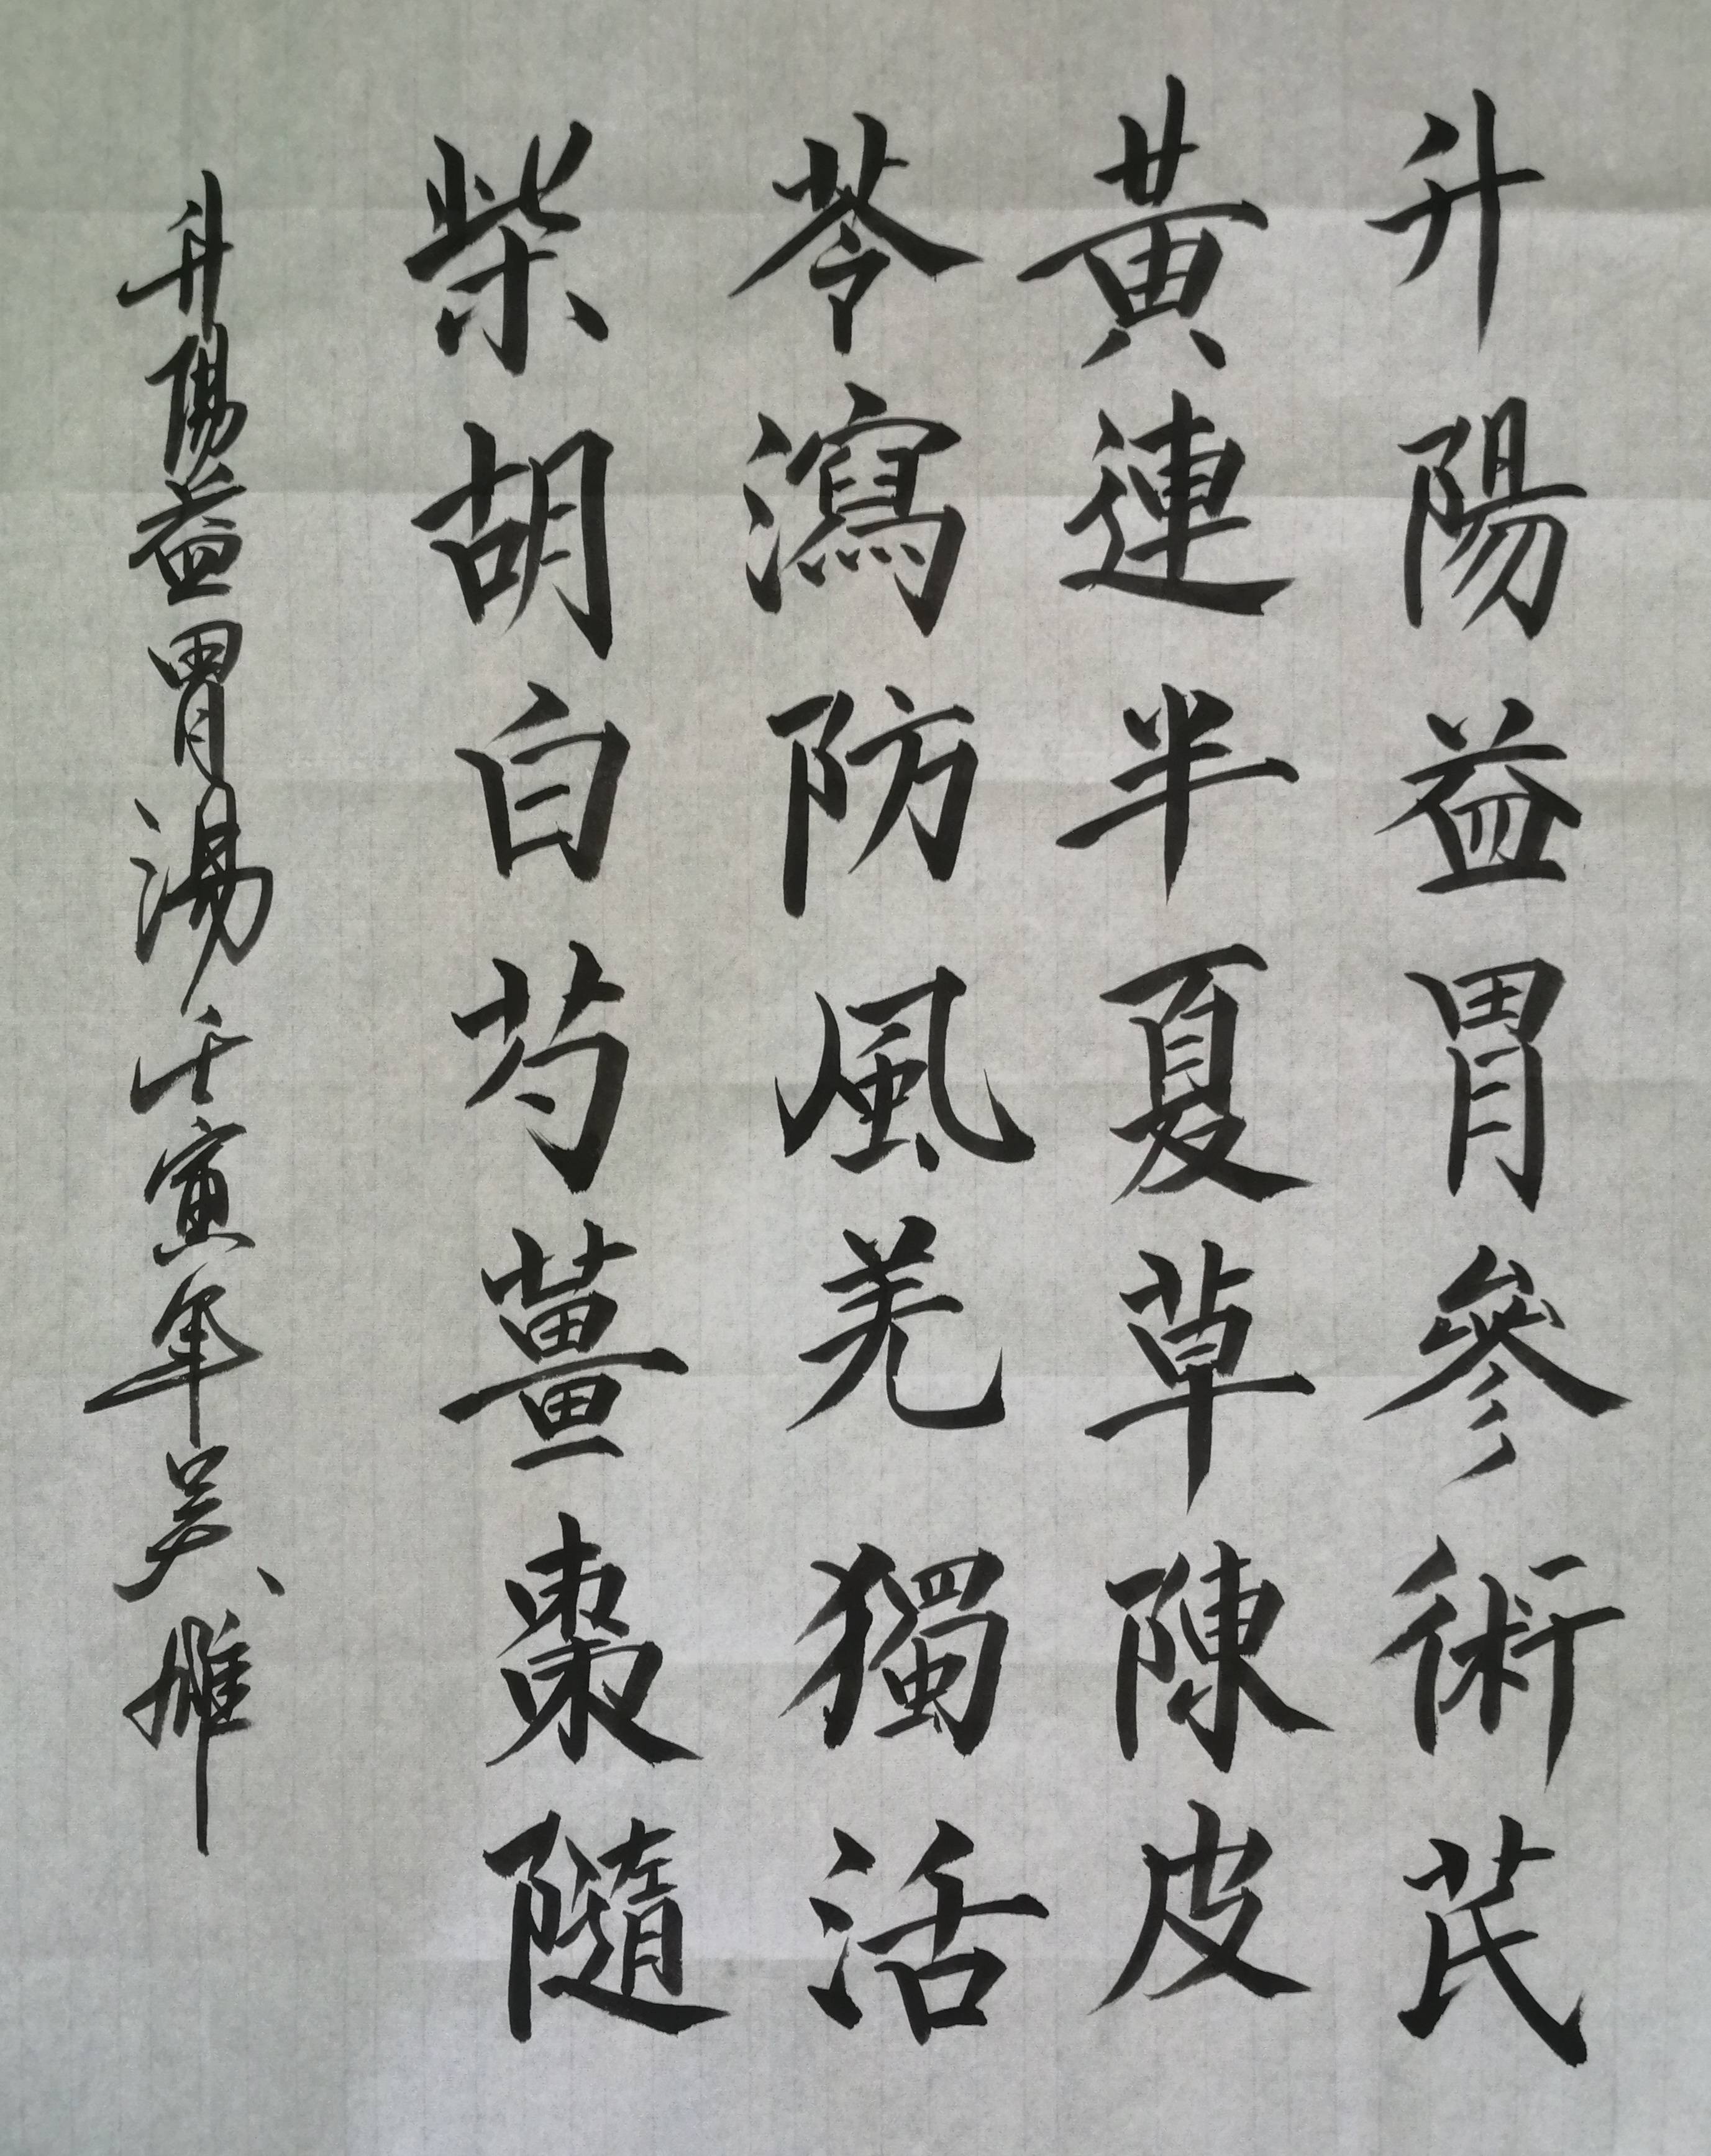 升陽益胃參術芪
黃連半夏草陳皮
苓瀉防風羌獨活
柴胡白芍薑棗隨
升陽益胃湯壬寅年吳雄